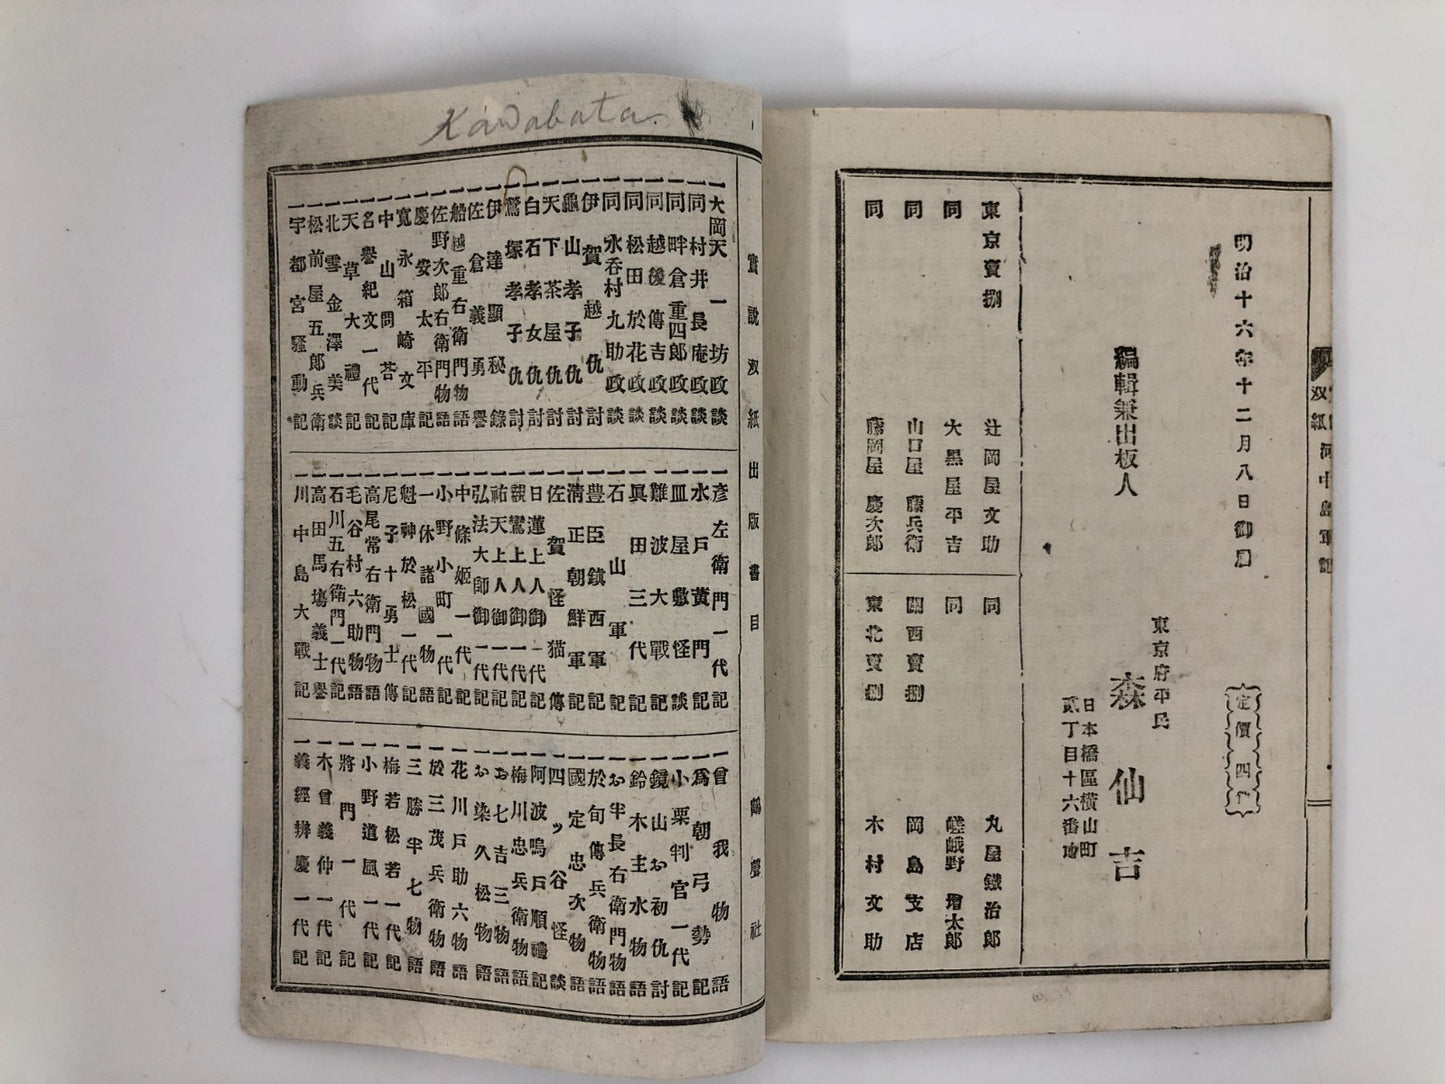 明治十六年十二月八日御届
定價四
編輯兼出板人
東京府平民
森仙吉
日本橋區横山町
貳丁目十六番地
東京賣捌
辻岡屋文助
同
大黒屋平吉
同
山口屋藤兵衛
同
藤岡屋慶次郎
同
丸屋鐵治郎
同
嵯峨野増太郎
關西賣捌
岡島支店
東北賣捌
木村文助
双紙 河中島軍記
Kawabata
實説双紙出版書目
鶴聲社
一大岡天一坊政談
一同村井長庵政談
一同畔倉重四郎政談
一同越後傳吉政談
一同松田於花政談
一同水呑村九助政談
一伊賀越仇討
一龜山孝子仇討
一天下茶屋仇討
一白石孝女仇討
一鷲塚孝子仇討
一伊達顯秘錄
一佐倉義勇譽
一船越重右衛門物語
一佐野次郎右衛門物語
一慶安太平記
一寛永箱崎文庫
一中山問答記
一名譽紀文一代記
一天草大禮記
一北雪金澤美談
一松前屋五郎兵衛
一宇都宮騒動記
一彦左衛門一代記
一水戸黄門記
一皿屋敷怪談
一難波大戰記
一眞田三代記
一石山軍記
一豊臣鎮西軍記
一清正朝鮮軍記
一佐賀怪猫傳
一日蓮上人御一代記
一親鸞上人御一代記
一祐天上人御一代記
一弘法大師御一代記
一中條姫一代記
一小野小町一代記
一一休諸國物語
一魁神於松一代記
一尼子十勇士傳
一高尾常右衛門物語
一毛谷村六助物語
一石川五右衛門一代記
一高田馬塲義士譽
一川中島大戰記
一曾我物語
一爲朝弓勢記
一小栗判官一代記
一鏡山お初仇討
一鈴木主水物語
一お半長右衛門物語
一於旬傳兵衛物語
一國定忠次物語
一四ッ谷怪談
一阿波鳴戸順禮記
一梅川忠兵衛物語
一お七吉三物語
一お染久松物語
一花川戸助六物語
一於三茂兵衛物語
一三勝半七物語
一梅若松若一代記
一小野道風一代記
一將門一代記
一木曾義仲一代記
一義經辨慶一代記